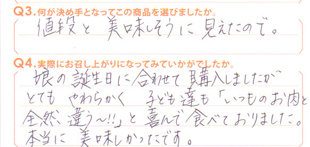 Q3.何が決め手となってこの商品を選びましたか。
値段と美味しそうに見えたので。
Q4.実際にお召し上がりになってみていかがでしたか。
娘の誕生日に合わせて購入しましたが
とてもやわらかく 子ども達も「いつものお肉と
全然、違う〜!!」と喜んで食べておりました。
本当に美味しかったです。